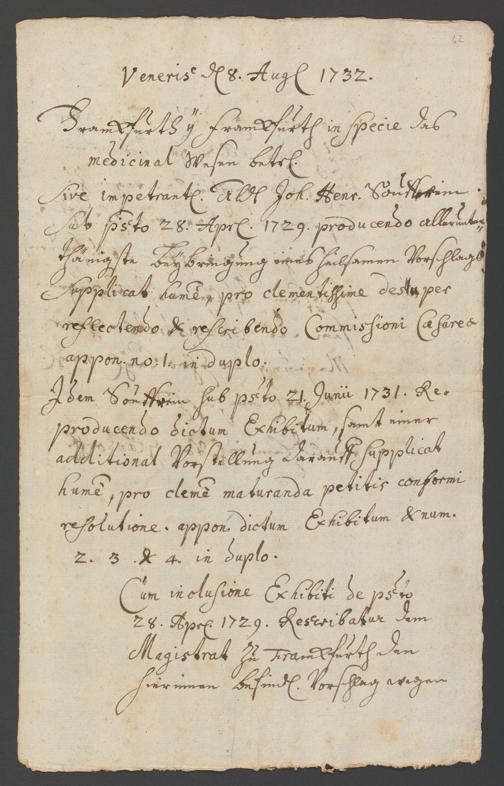 62
Veneris 8. Aug 1732.
Franckfurth Franckfurth in specie das
medicinal Wesen betr.
sive impetrant. Joh. Henr.
sub psto 28. Apr. 1729. producendo allerunter-
thänigste Beybringung eines heilsamen Vorschlags
supplicat hume, pro clementissime desuper
reflectendo & rescribendo Commissioni Cæsareæ
appon. no. 1. in duplo.
Idem sub psto 21. Junii 1731. Re-
producendo dictum Exhibitum, samt einer
additional Vorstellung darauff supplicat
hume, pro cleme maturanda petitis conformi
resolutione. appon. dictum Exhibitum & num.
2. 3. & 4. in duplo.
Cum inclusione Exhibiti de psto
28. Apr. 1729. Rescribatur dem
Magistrat zu Franckfurth den
hierinnen befindl. Vorschlag wegen